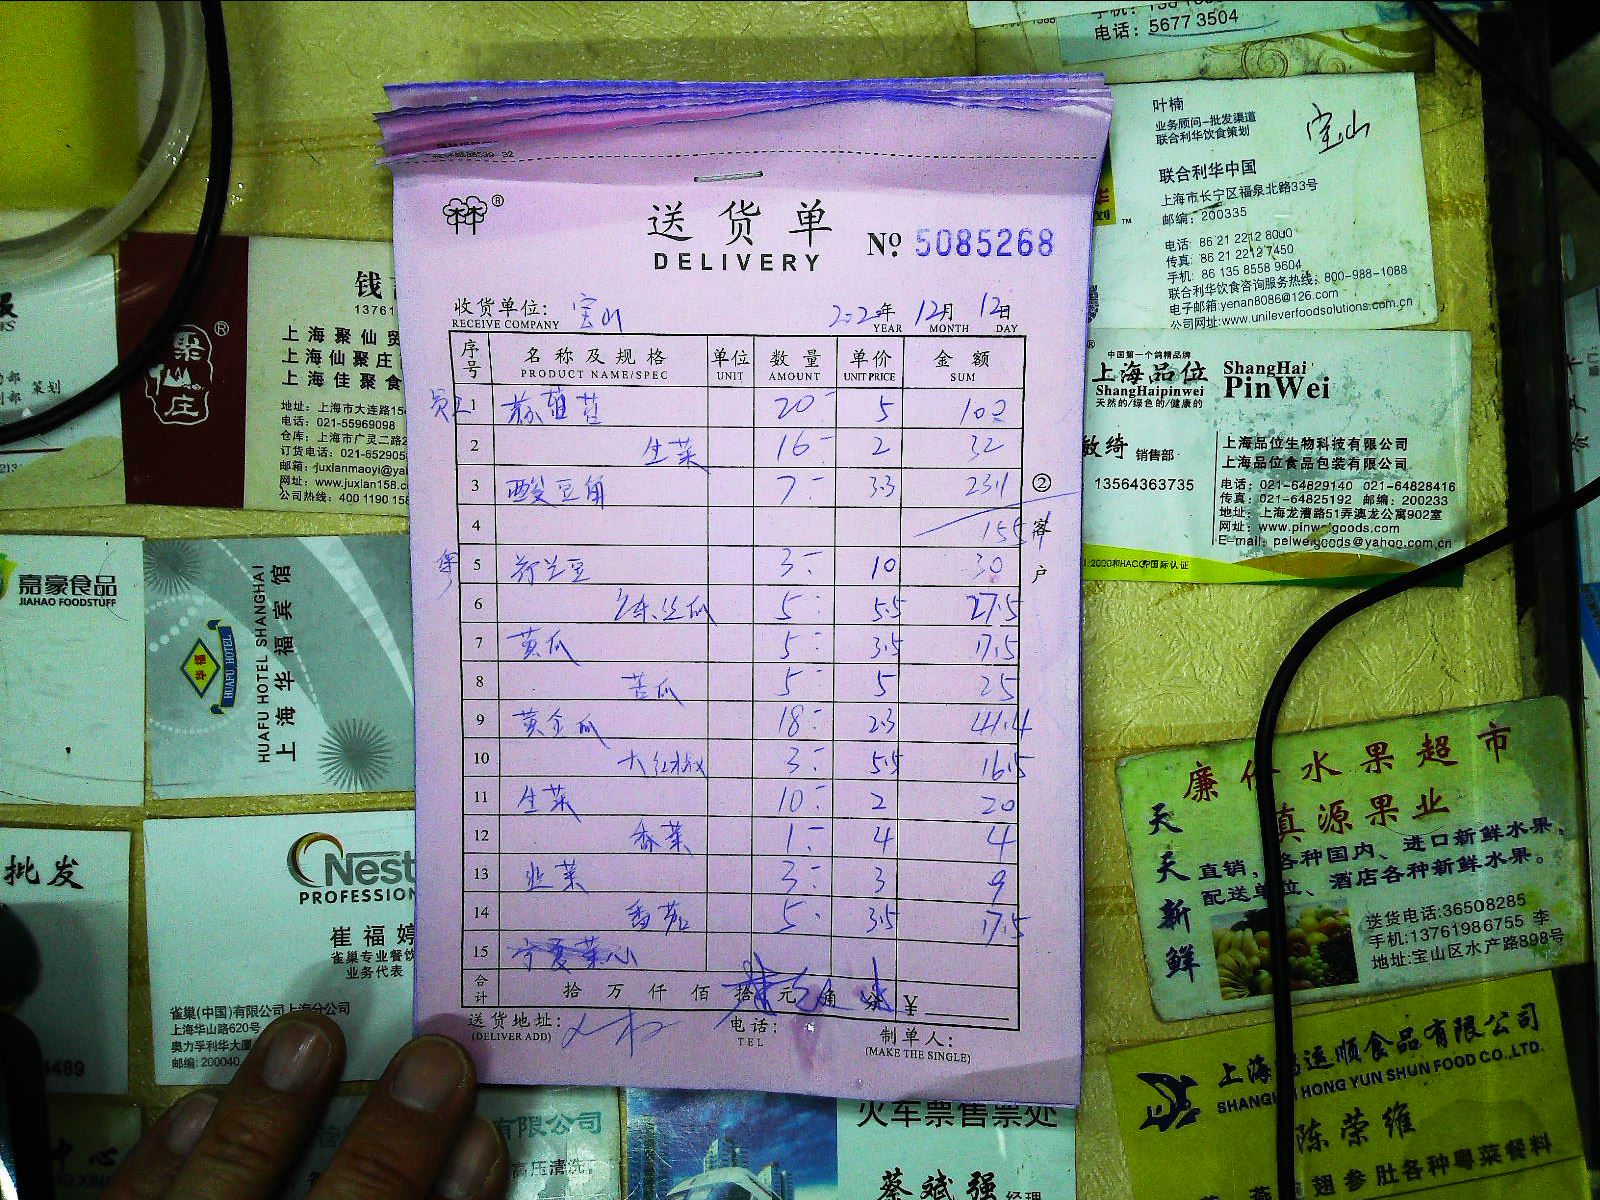 电话: 5677 3504
叶楠
业务顾问-批发渠道
联合利华饮食策划
宝山
联合利华中国
上海市长宁区福泉北路33号
邮编: 200335
电话: 86 21 2212 8000
传真: 86 21 2212 7450
手机: 86 135 8558 9604
联合利华饮食咨询服务热线: 800-988-1088
电子邮箱:yenan8086@126.com
公司网址:www.unileverfoodsolutions.com.cn
送货单
DELIVERY
№ 5085268
收货单位: 宝山
RECEIVE COMPANY
年 12月 12日
YEAR MONTH DAY
序号 名称及规格 单位 数量 单价 金额
PRODUCT NAME/SPEC UNIT AMOUNT UNIT PRICE SUM
1 20 5 100
2 生菜 16 2 32
3 酸豆角 7 3.3 23.1
4 155
5 荷兰豆 3 10 30
6 丝瓜 5 5.5 27.5
7 黄瓜 5 3.5 17.5
8 苦瓜 5 5 25
9 黄金瓜 18 2.3 41.4
10 大红椒 3 5.5 16.5
11 生菜 10 2 20
12 香菜 1 4 4
13 韭菜 3 3 9
14 番茄 5 3.5 17.5
15
合计 拾 万 仟 佰 拾 元 角 分 ¥
送货地址: 电话: 制单人:
(DELIVER ADD) TEL (MAKE THE SINGLE)
②客户
钱
13761
聚仙庄
上海聚仙贸
上海仙聚庄
上海佳聚食
地址: 上海市大连路15
电话: 021-55969098
仓库: 上海市广灵二路2
订货电话: 021-652905
邮箱: juxianmaoyi@ya
网址: www.juxian158.c
公司热线: 400 1190 158
策划
中国第一个鸽精品牌
上海品位 ShangHai
ShangHaipinwei PinWei
天然的/绿色的/健康的
敏绮 销售部
13564363735
上海品位生物科技有限公司
上海品位食品包装有限公司
电话: 021-64829140 021-64828416
传真: 021-64825192 邮编: 200233
地址: 上海龙漕路51弄澳龙公寓902室
网址: www.pinweigoods.com
E-mail: peiweigoods@yahoo.com.cn
嘉豪食品
JIAHAO FOODSTUFF
华福
HUAFU HOTEL
HUAFU HOTEL SHANGHAI
上海华福宾馆
批发
Nest
PROFESSION
崔福婷
雀巢专业餐饮
业务代表
雀巢(中国)有限公司上海分公司
上海华山路620号
奥力孚利华大厦
邮编: 200040
4489
廉价水果超市
真源果业
天天新鲜
直销,各种国内、进口新鲜水果,
配送单位、酒店各种新鲜水果。
送货电话:36508285
手机:13761986755 李
地址:宝山区水产路898号
运顺食品有限公司
SHANGHAI HONG YUN SHUN FOOD CO.,LTD.
陈荣维
翅参肚各种粤菜餐料
有限公司
高压清洗
火车票售票处
蔡斌强 经理
中心